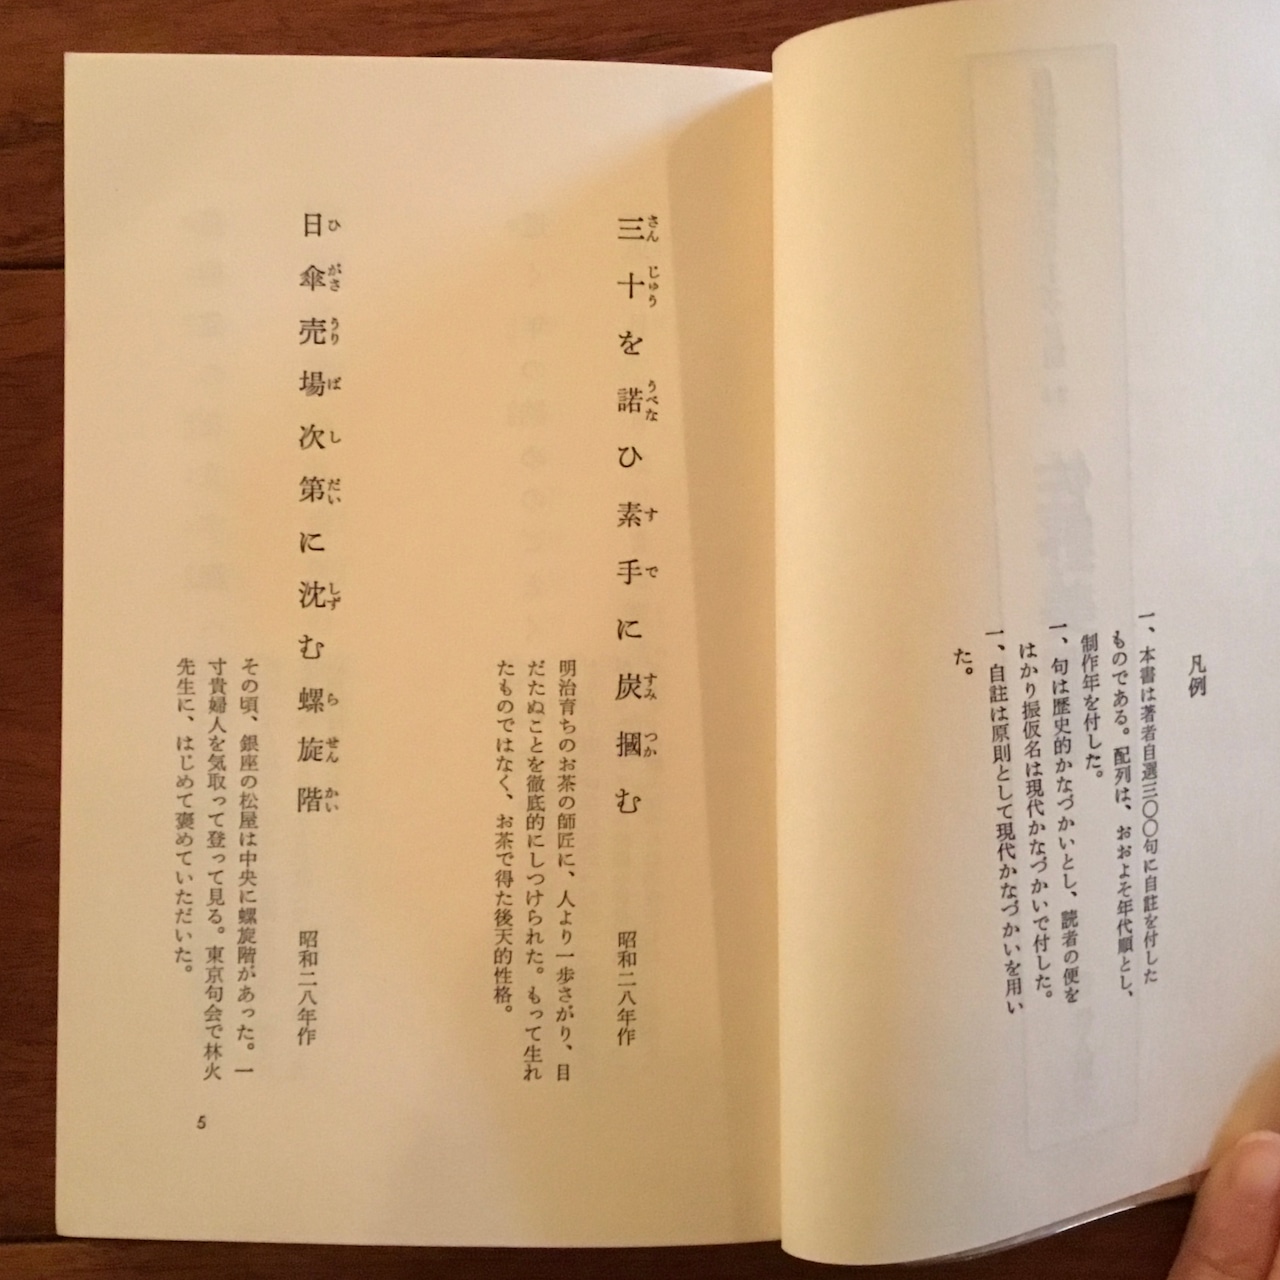 凡例
一、本書は著者自選三〇〇句に自註を付した
ものである。配列は、おおよそ年代順とし、
制作年を付した。
一、句は歴史的かなづかいとし、読者の便を
はかり振仮名は現代かなづかいで付した。
一、自註は原則として現代かなづかいを用い
た。
三十を諾ひ素手に炭摑む
さんじゅう うべな すで すみ つか
昭和二八年作
明治育ちのお茶の師匠に、人より一歩さがり、目
だたぬことを徹底的にしつけられた。もって生れ
たものではなく、お茶で得た後天的性格。
日傘売場次第に沈む螺旋階
ひがさうりばしだい しず らせんかい
昭和二八年作
その頃、銀座の松屋は中央に螺旋階があった。一
寸貴婦人を気取って登って見る。東京句会で林火
先生に、はじめて褒めていただいた。
5